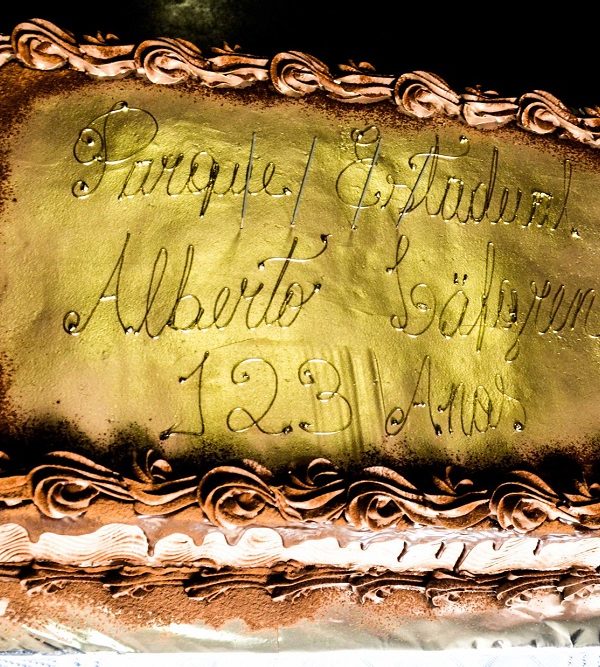 Parque Estadual
Alberto Läfgren
123 Anos